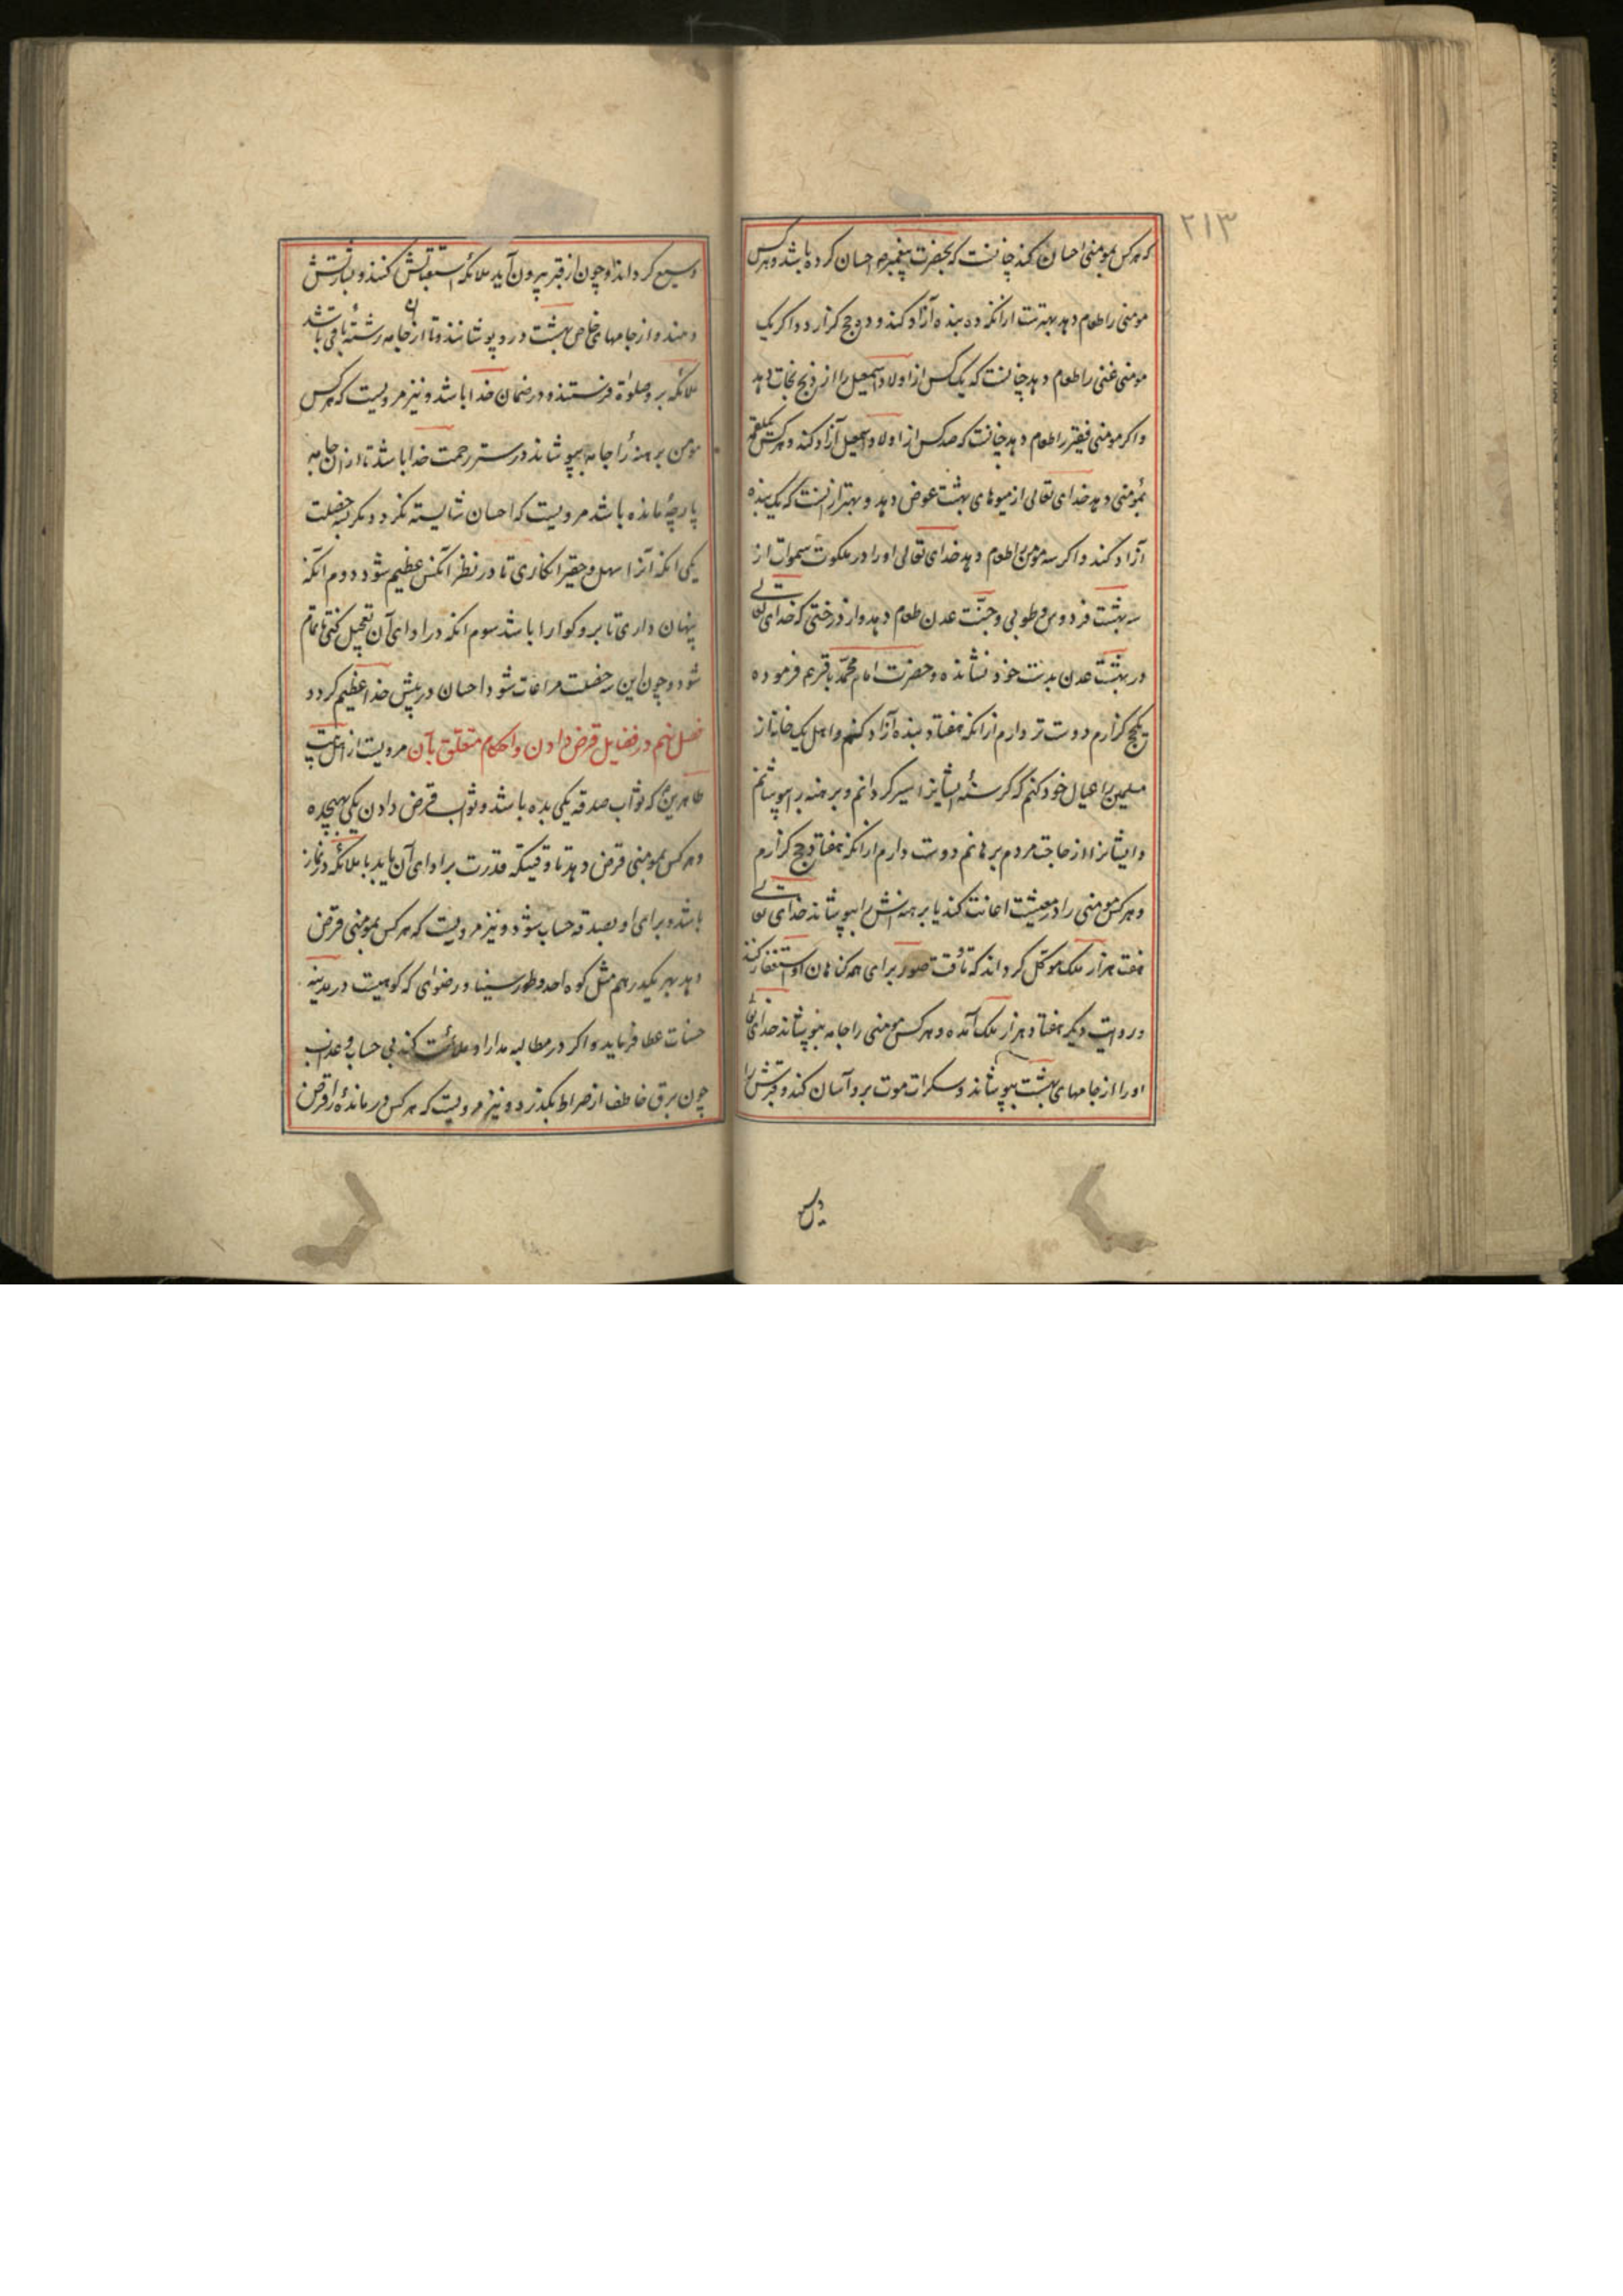 ۲۱۳
که هرکس بمومنی احسان کند چنانست که بحضرت پیغمبر ص احسان کرده باشد و هرکس
مومنی را طعام دهد بهترست ازانکه ده بنده آزاد کند و ده حج گزارد و اگر یک
مومنی غنی را طعام دهد چنانست که یک کس از اولاد اسمعیل را از ذبح نجات دهد
و اگر مومنی فقیر را طعام دهد چنانست که صد کس از اولاد اسمعیل آزاد کند و هرکس یکلقمه
بمومنی دهد خدای تعالی از میوهای بهشت عوض دهد و بهتر ازانست که یک بنده
آزاد کند و اگر سه مومن را طعام دهد خدای تعالی او را در ملکوت سموات از
سه بهشت فردوس و طوبی و جنّت عدن طعام دهد و از درختی که خدای تعالی
در بهشت عدن بدست خود نشانده و حضرت امام محمّد باقر ع فرموده
یکحج گزارم دوست تر دارم ازانکه هفتاد بنده آزاد کنم و اهل یک خانه از
مسلمین را عیال خود کنم که گرسنهٔ ایشانرا سیر گردانم و برهنه را بپوشانم
و ایشانرا از حاجت مردم برهانم دوست دارم ازانکه هفتاد حج گزارم
و هرکس مومنی را در معیشت اعانت کند یا برهنه اش را بپوشاند خدای تعالی
هفت هزار ملک موکّل گرداند که تا وقت صور برای همه گناهان او استغفار کنند
در روایت دیگر هفتاد هزار ملک آمده و هرکس مومنی را جامه بپوشاند خدای تعالی
او را از جامهای بهشت بپوشاند و سکرات موت برو آسان کند و قبرش را
وسیع گرداند و چون از قبر بیرون آید ملائکه استقبالش کنند و بشارتش
دهند و از جامهای خاص بهشت درو پوشانند و تا از جامه رشتهٔ باقی باشد
ملائکه برو صلوة فرستند و در ضمان خدا باشد و نیز مرویست که هرکس
مومن برهنهٔ را جامه بپوشاند در ستر رحمت خدا باشد تا از ان جامه
پارچهٔ مانده باشد مرویست که احسان شایسته نگردد مگر بسه خصلت
یکی انکه آنرا سهل و حقیر انگاری تا در نظر آنکس عظیم شود دوم آنکه
پنهان داری تا برو گوارا باشد سوم انکه در ادای آن تعجیل کنی تا تمام
شود و چون این سه خصلت مراعات شود احسان در پیش خدا عظیم گردد
فصل نهم در فضایل قرض دادن و احکام متعلق بآن مرویست از اهل بیت
طاهرین ع که ثواب صدقه یکی بده باشد و ثواب قرض دادن یکی بهیجده
و هرکس بمومنی قرض دهد تا وقتیکه قدرت بر ادای آن یابد با ملائکه در نماز
باشد و برای او بصدقه حساب شود و نیز مرویست که هرکس بمومنی قرض
دهد بهر یکدرهم مثل کوه احد و طور سینا و رضوای که کوهیست در مدینه
حسنات عطا فرماید و اگر در مطالبه مدارا و ملائمت کند بی حساب و عذاب
چون برق خاطف از صراط بگذرد و نیز مرویست که هرکس درماندهٔ را قرض